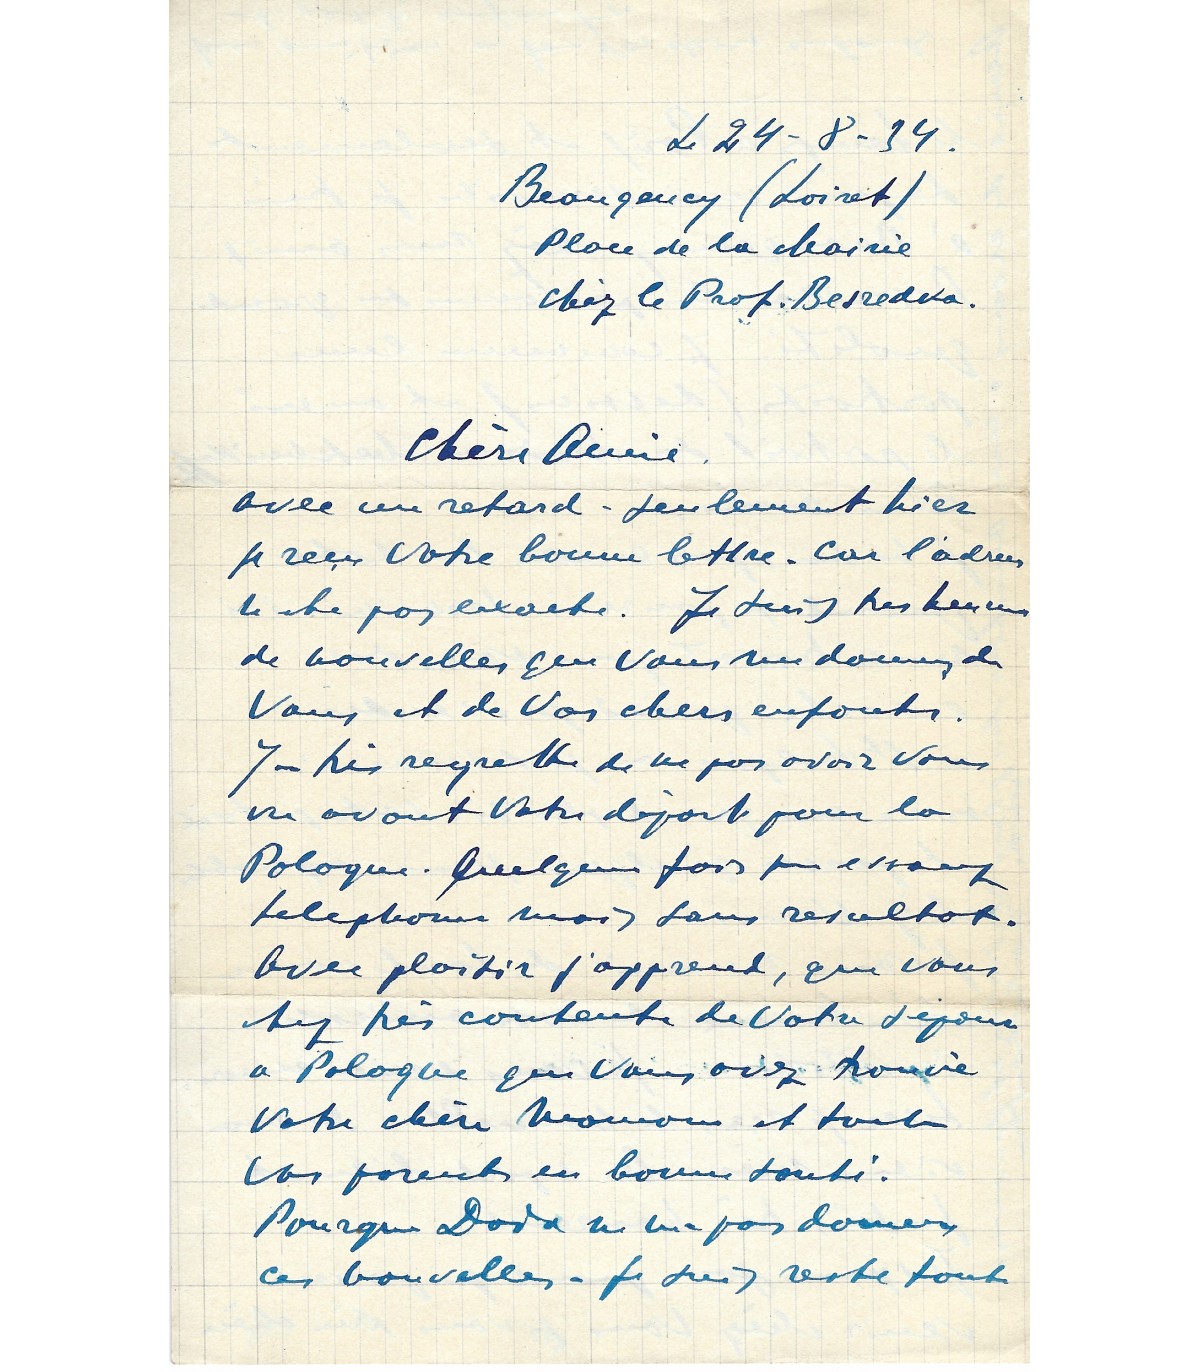 Le 24-8-34.
Beaugency (Loiret)
Place de la Mairie
chez le Prof. Besredka.
Chère Amie.
avec un retard - seulement hier
je reçu Votre bonne lettre. Car l'adress
n ete pas exacte. Je suis tres heureus
de nouvelles que Vous me donnez de
Vous et de Vos chers enfants.
J très regrette de ne pas avoir Vous
vu avant Votre départ pour la
Pologne. Quelque fois j'ai essayé
telephoner mais sans resultat.
Avec plaisir j'apprend, que Vous
etez très contente de Votre sejour
a Pologne que Vous avez trouvé
Votre chère Maman et toute
Vos parents en bonne santé.
Pourque Doda ne me pas donner
ces nouvelles - Je suis reste tout